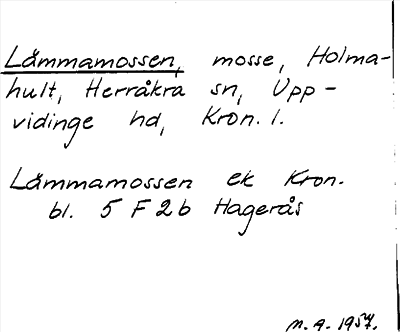 Låmmamossen, mosse, Holma-
hult, Herråkra sn, Upp-
vidinge hd, Kron. l.
Låmmamossen ek Kron.
bl. 5 F 2 b Hagerås
M. A. 1957.